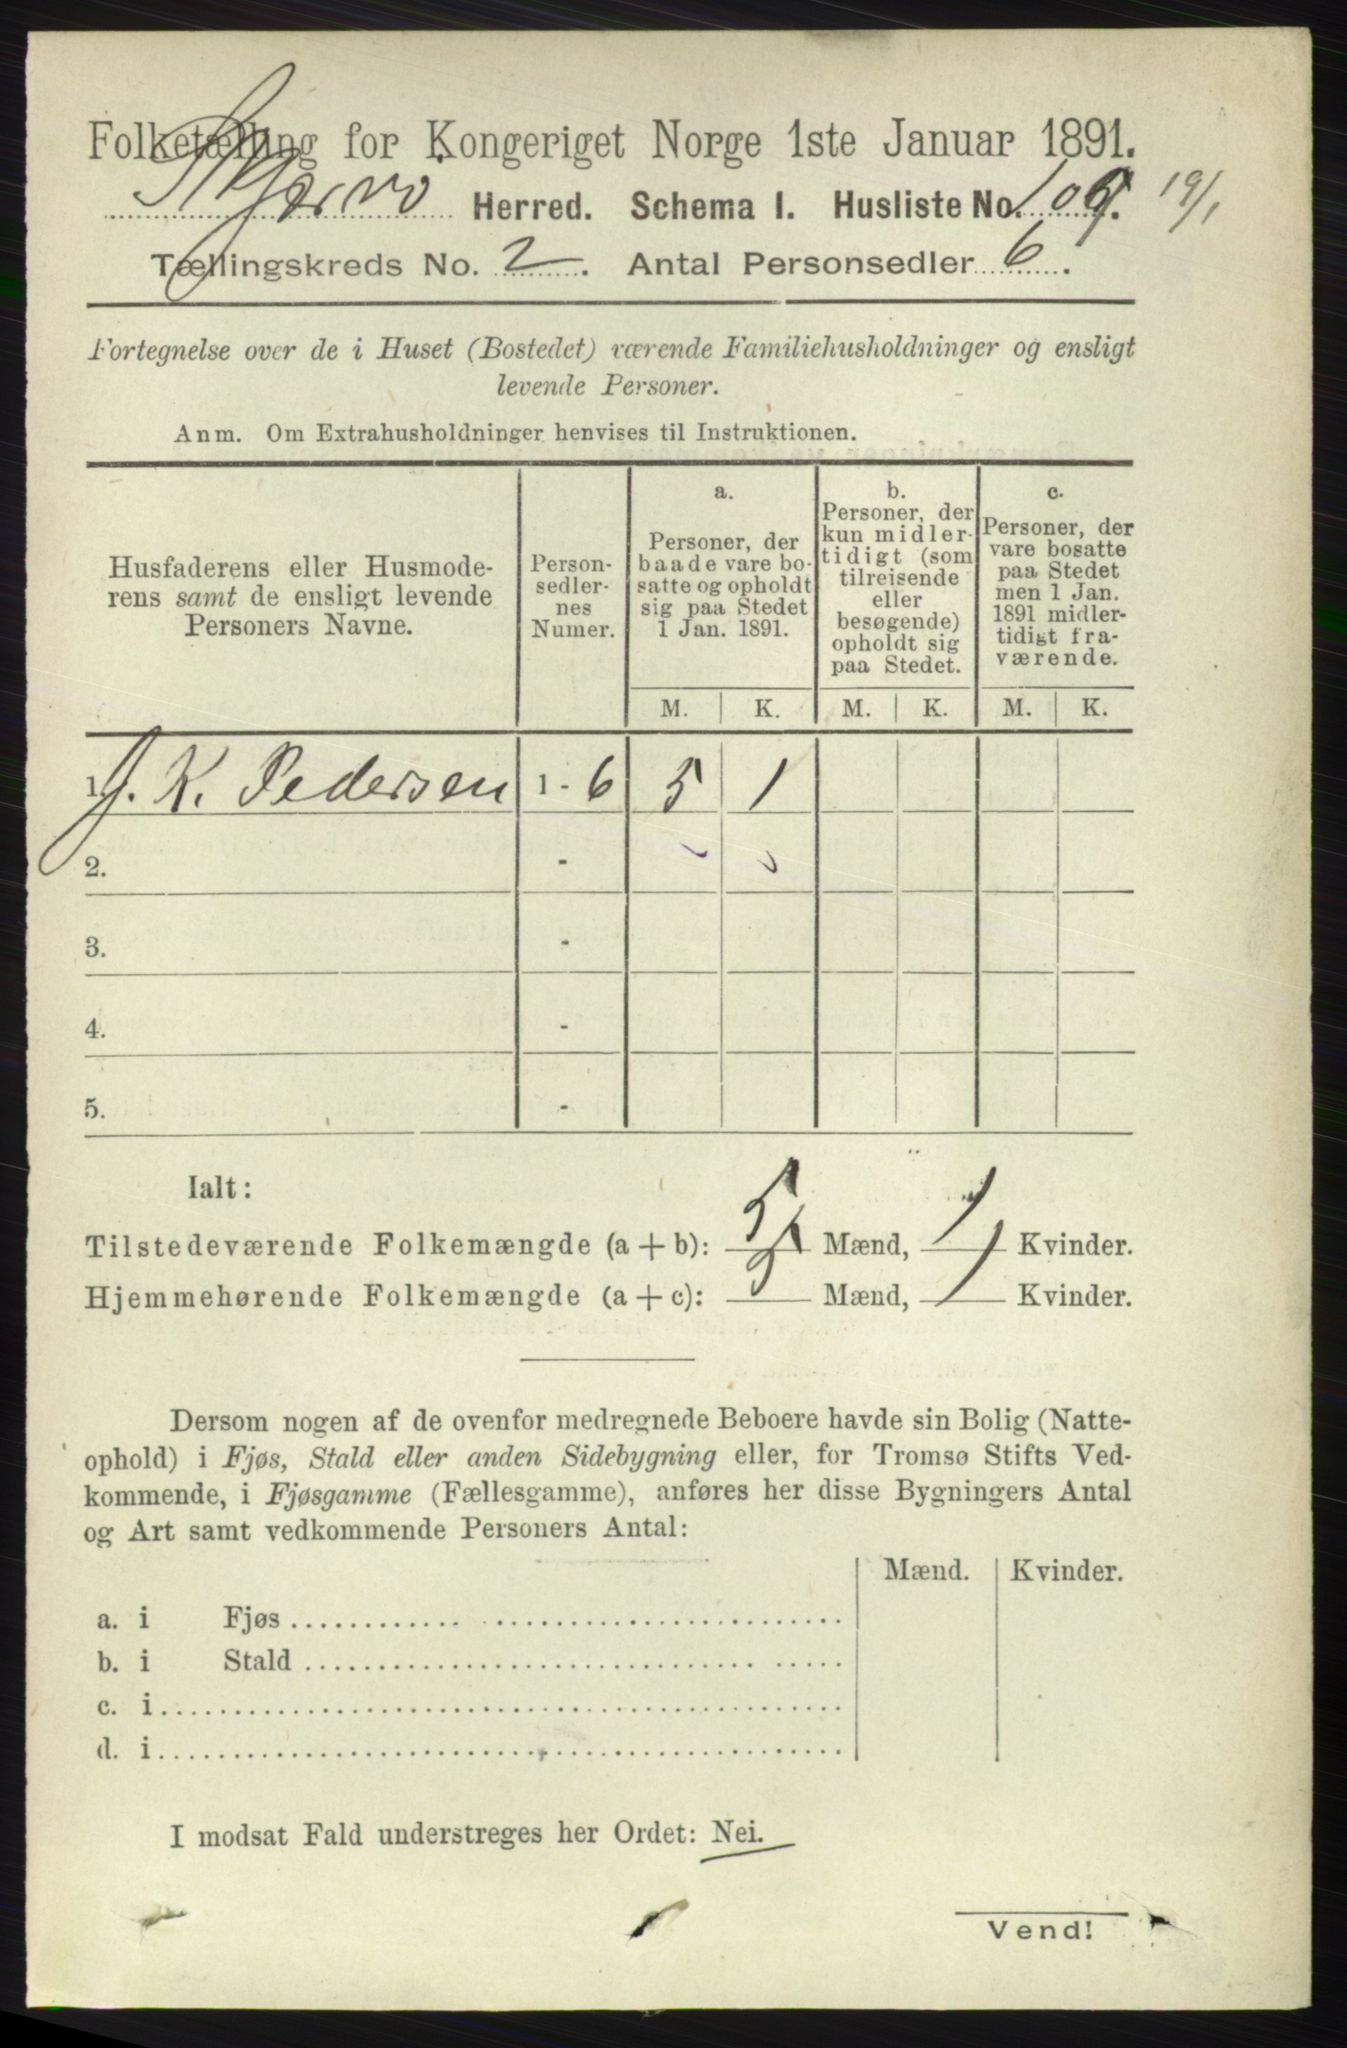 Folketælling for Kongeriget Norge 1ste Januar 1891.
Skjervø Herred. Schema I. Husliste No. 19/1
Tællingskreds No. 2. Antal Personsedler 6.
Fortegnelse over de i Huset (Bostedet) værende Familiehusholdninger og ensligt
levende Personer.
Anm. Om Extrahusholdninger henvises til Instruktionen.
Husfaderens eller Husmode-
rens samt de ensligt levende
Personers Navne.
Person-
sedler-
nes
Numer.
a.
Personer, der
baade vare bo-
satte og opholdt
sig paa Stedet
1 Jan. 1891.
b.
Personer, der
kun midler-
tidigt (som
tilreisende
eller
besøgende)
opholdt sig
paa Stedet.
c.
Personer, der
vare bosatte
paa Stedet
men 1 Jan.
1891 midler-
tidigt fra-
værende.
M. K. M. K. M. K.
1. J. K. Pedersen 1 - 6 5 1
2. -
3. -
4. -
5. -
Ialt:
Tilstedeværende Folkemængde (a + b): 5 Mænd, 1 Kvinder.
Hjemmehørende Folkemængde (a + c): 5 Mænd, 1 Kvinder.
Dersom nogen af de ovenfor medregnede Beboere havde sin Bolig (Natte-
ophold) i Fjøs, Stald eller anden Sidebygning eller, for Tromsø Stifts Ved-
kommende, i Fjøsgamme (Fællesgamme), anføres her disse Bygningers Antal
og Art samt vedkommende Personers Antal:
Mænd. Kvinder.
a. i Fjøs
b. i Stald
c. i
d. i
I modsat Fald understreges her Ordet: Nei.
Vend!